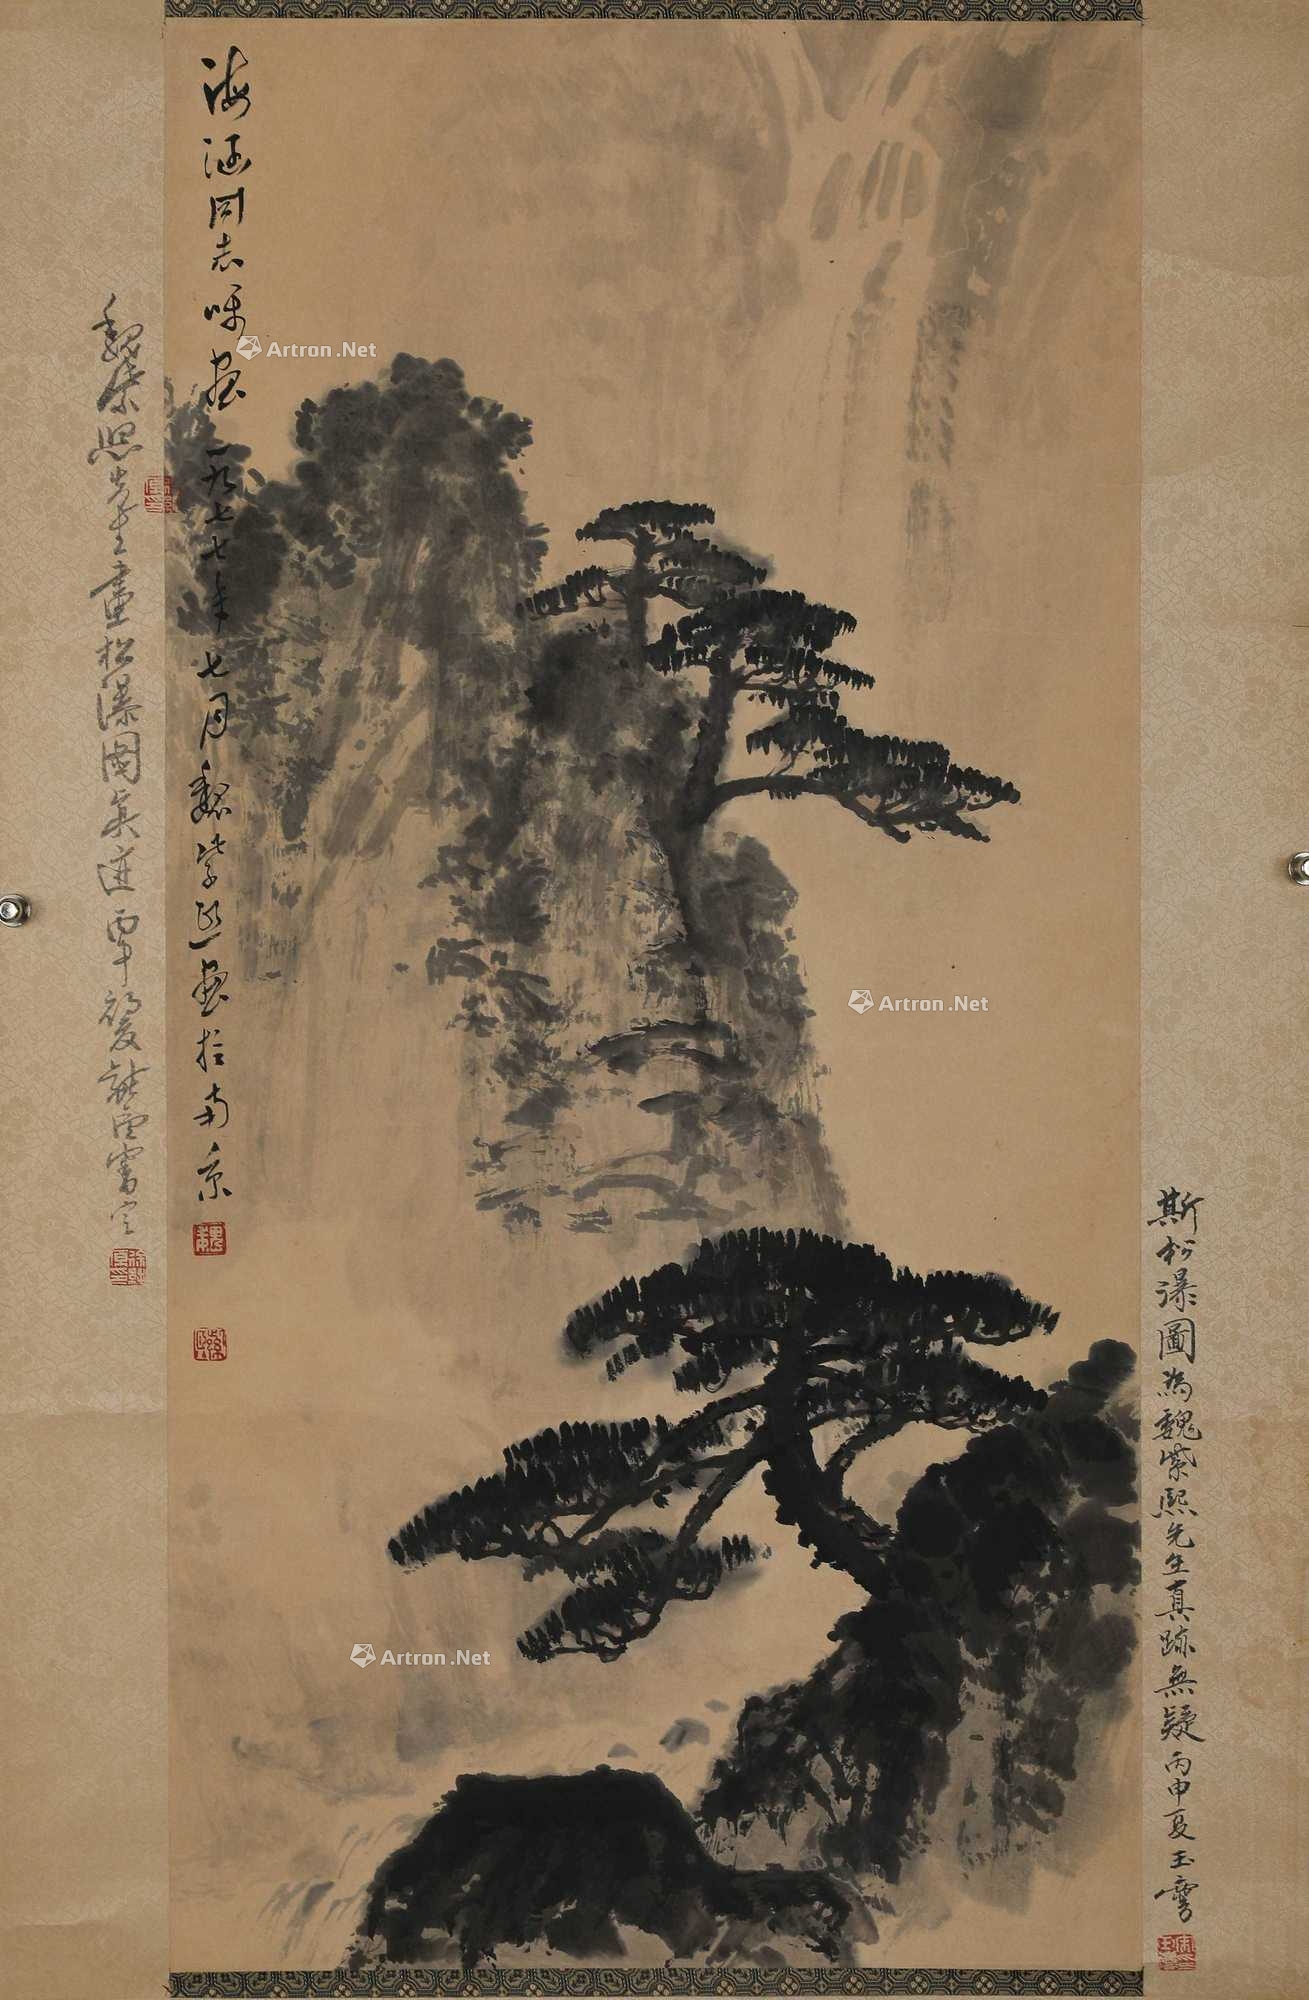 海涵同志嘱画 一九七七年七月 魏紫熙画于南京
魏紫熙先生画松瀑图真迹 丙申
斯松瀑圖為魏紫熙先生真跡無疑 丙申夏 玉
Artron.Net
Artron.Net
Artron.Net
魏